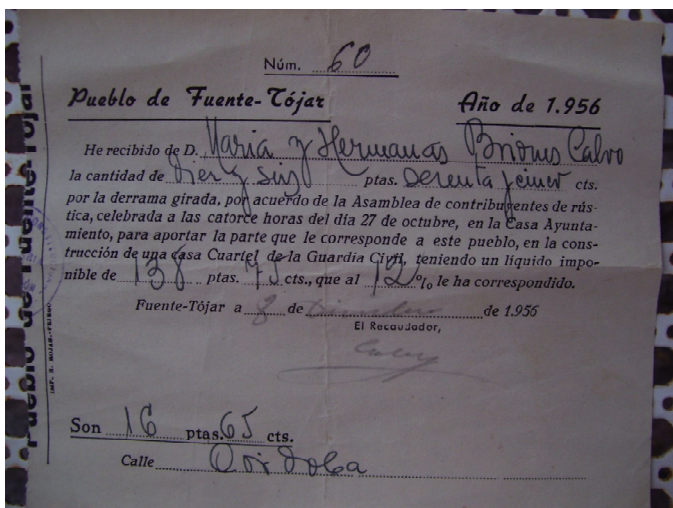 Núm. 60
Pueblo de Fuente-Tójar Año de 1.956
He recibido de D. Maria y Hermanas Briones Calvo
la cantidad de diez y seis ptas. sesenta y cinco cts.
por la derrama girada, por acuerdo de la Asamblea de contribuyentes de rús-
tica, celebrada a las catorce horas del día 27 de octubre, en la Casa Ayunta-
miento, para aportar la parte que le corresponde a este pueblo, en la cons-
trucción de una casa Cuartel de la Guardia Civil, teniendo un líquido impo-
nible de 138 ptas. 75 cts., que al 12 % le ha correspondido.
Fuente-Tójar a de Diciembre de 1.956
El Recaudador,
Son 16 ptas. 65 cts.
Calle Cordoba
Pueblo de Fuente-Tójar